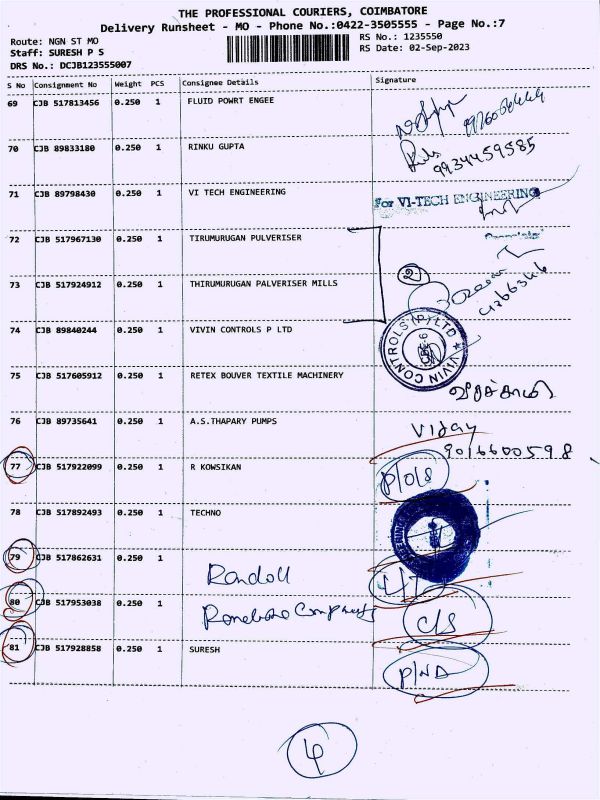 THE PROFESSIONAL COURIERS, COIMBATORE
Delivery Runsheet - MO - Phone No.:0422-3505555 - Page No.:7
Route: NGN ST MO
Staff: SURESH P S
DRS No.: DCJB123555007
RS No.: 1235550
RS Date: 02-Sep-2023
S No Consignment No Weight PCS Consignee Details Signature
69 CJB 517813456 0.250 1 FLUID POWRT ENGEE
70 CJB 89833180 0.250 1 RINKU GUPTA
9934459585
71 CJB 89798430 0.250 1 VI TECH ENGINEERING
For VI-TECH ENGINEERING
72 CJB 517967130 0.250 1 TIRUMURUGAN PULVERISER
2
73 CJB 517924912 0.250 1 THIRUMURUGAN PALVERISER MILLS
74 CJB 89840244 0.250 1 VIVIN CONTROLS P LTD
VIVIN CONTROLS (P) LTD
CBE-6
75 CJB 517605912 0.250 1 RETEX BOUVER TEXTILE MACHINERY
வீரச்சாமி
76 CJB 89735641 0.250 1 A.S.THAPARY PUMPS
Vijay
9016600598
77 CJB 517922099 0.250 1 R KOWSIKAN
P/O/S
78 CJB 517892493 0.250 1 TECHNO
79 CJB 517862631 0.250 1
Randoll
80 CJB 517953038 0.250 1
C/S
81 CJB 517928858 0.250 1 SURESH
P/ND
4